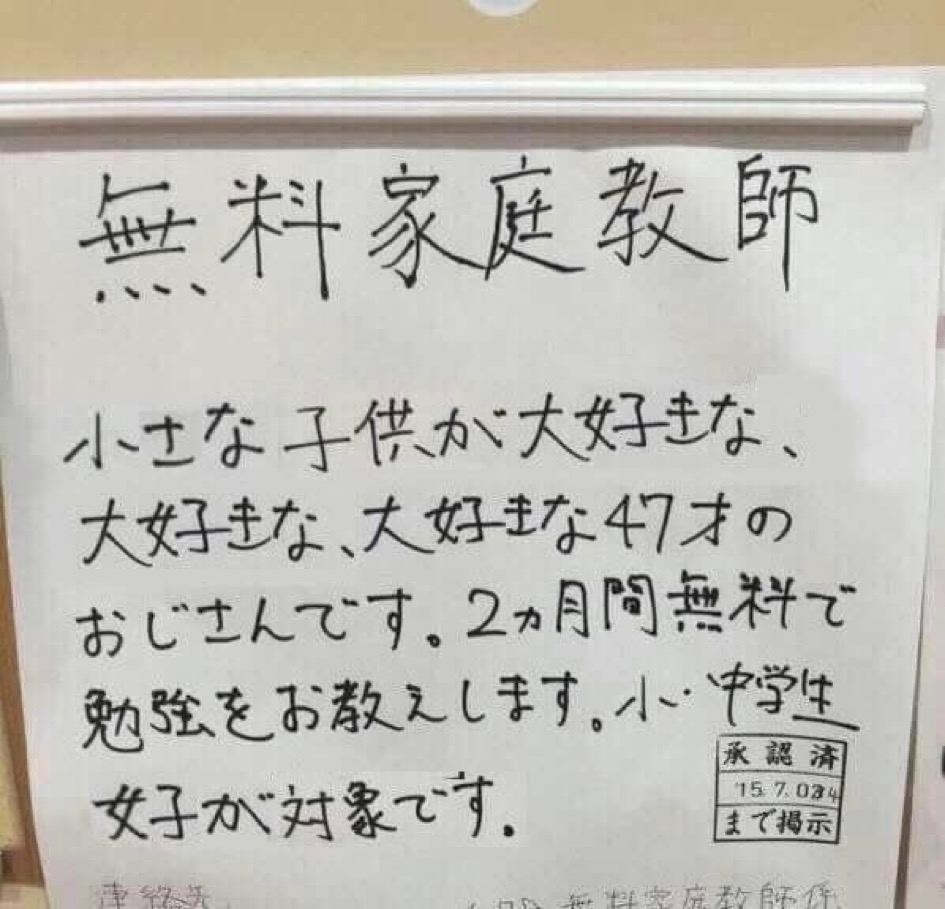 無料家庭教師
小さな子供が大好きな、
大好きな、大好きな47才の
おじさんです。2ヵ月間無料で
勉強をお教えします。小・中学生
女子が対象です。
承認済
15.7.
まで掲示
連絡先
無料家庭教師係